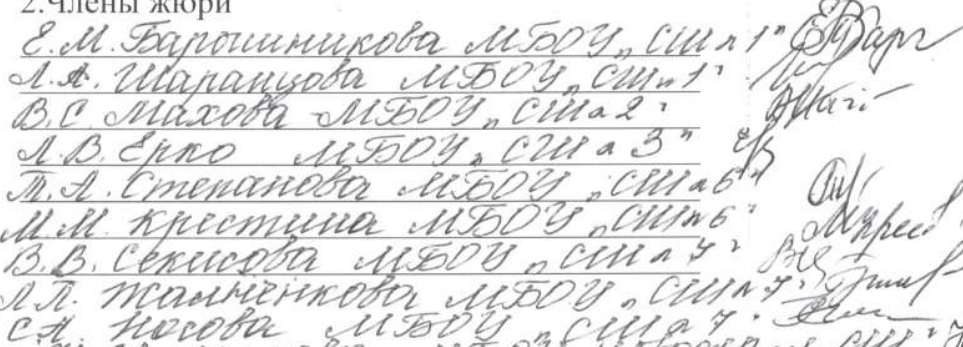 2.Члены жюри
Е.М. Барошникова МБОУ „СШ №1"
Л.А. Шаранцова МБОУ „СШ №1"
В.С. Махова МБОУ „СШ №2"
Л.В. Ерко МБОУ „СШ №3"
Т.А. Степанова МБОУ „СШ №6"
М.М. Крестина МБОУ „СШ №6"
В.В. Секисова МБОУ „СШ №7"
МБОУ „СШ №7"
С.А. Носова МБОУ „СШ №7"